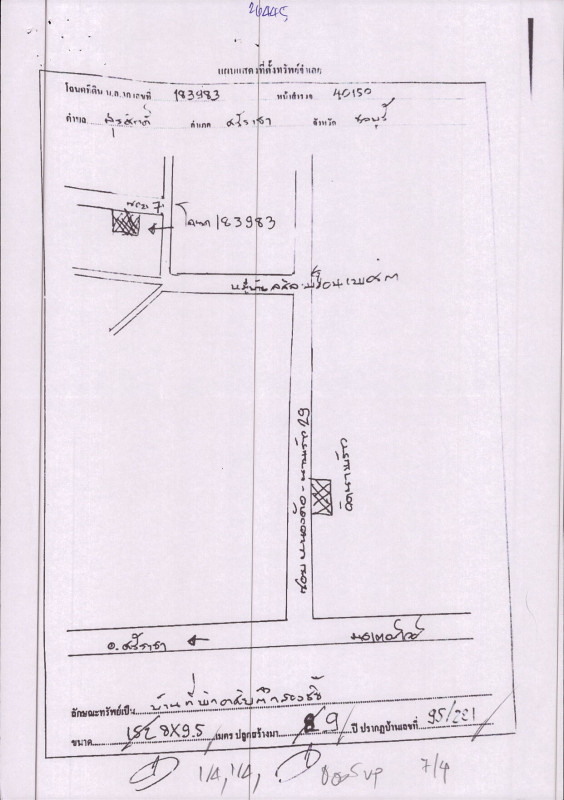 26445
แผนแสดงที่ตั้งทรัพย์จำนอง
โฉนดที่ดิน น.ส.3ก เลขที่ 183983 หน้าสำรวจ 40150
ตำบล สุรศักดิ์ อำเภอ ศรีราชา จังหวัด ชลบุรี
ซอย 7
โฉนด 183983
หมู่บ้าน
ซอย หนองค้อ - นาพร้าว 29
วัดนาพร้าว
อ.ศรีราชา
มอเตอร์เวย์
ลักษณะทรัพย์เป็น บ้านที่พักอาศัยตึกสองชั้น
ขนาด 8X9.5 เมตร ปลูกสร้างมา 9 ปี ปรากฏบ้านเลขที่ 95/221
1/4, 1/4, 7/4